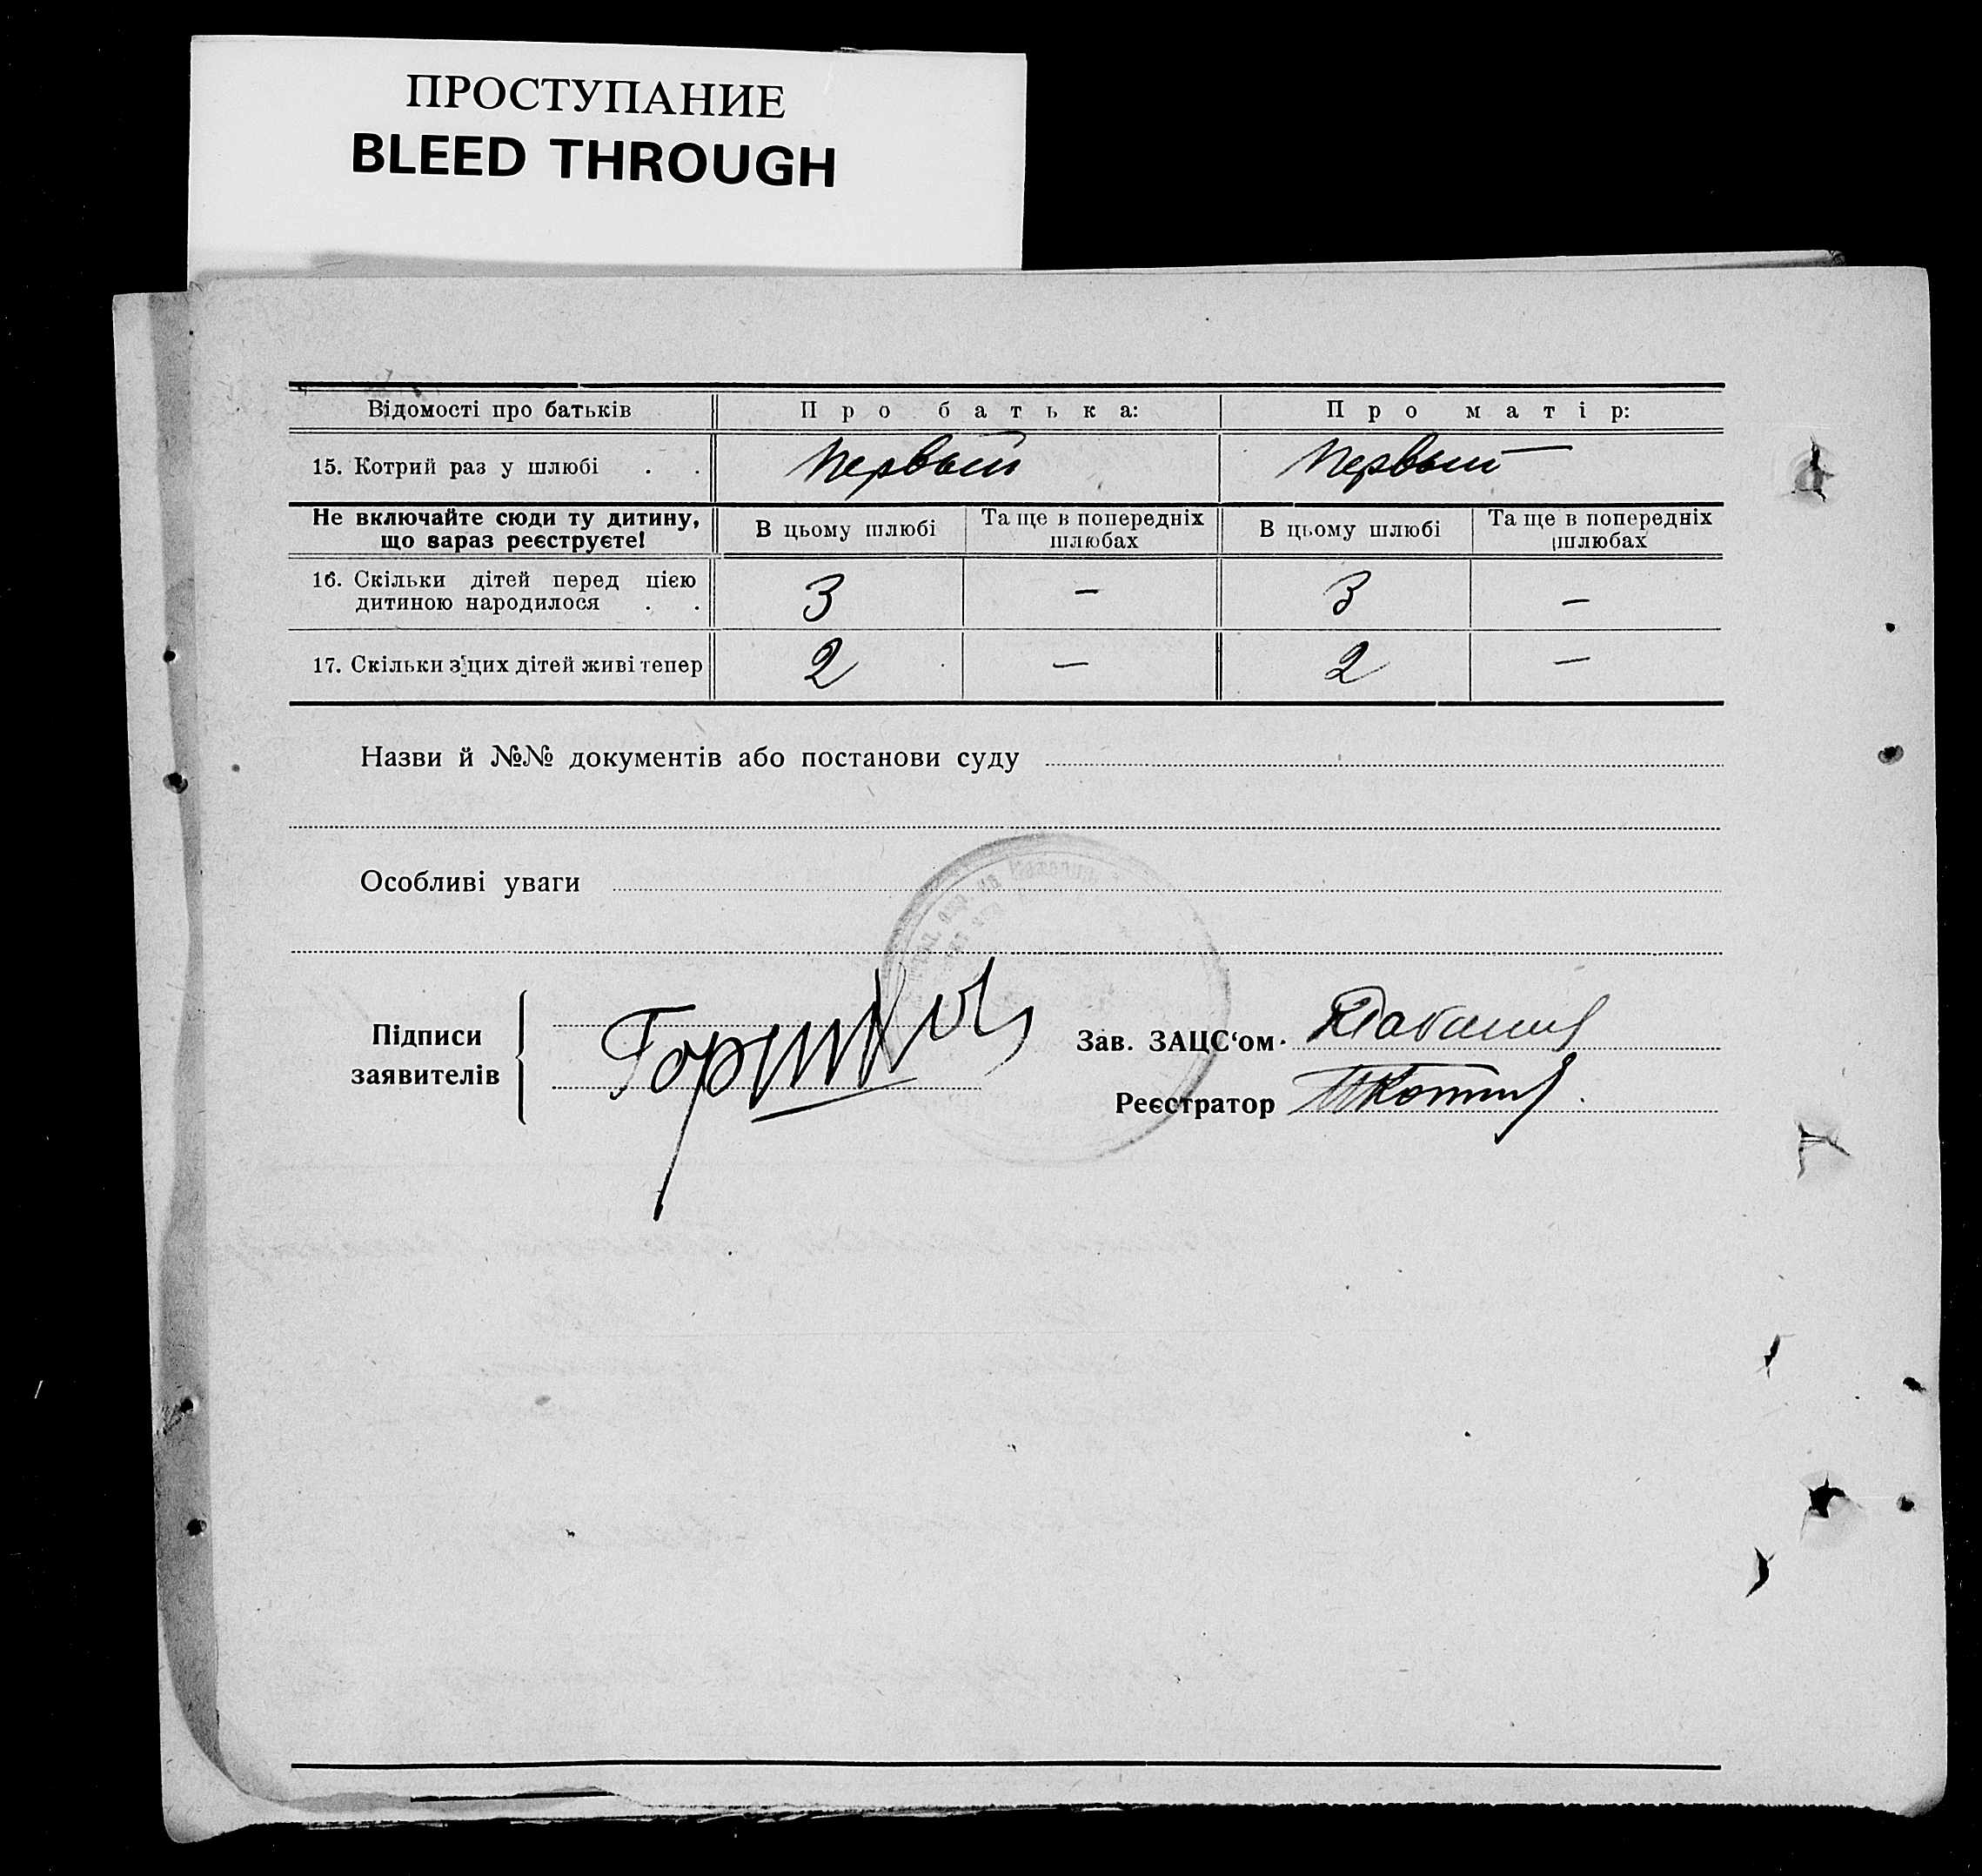 ПРОСТУПАНИЕ
BLEED THROUGH
Відомості про батьків Про батька: Про матір:
15. Котрий раз у шлюбі . . первый первый
Не включайте сюди ту дитину, що вараз реєструєте! В цьому шлюбі Та ще в попередніх шлюбах В цьому шлюбі Та ще в попередніх шлюбах
16. Скільки дітей перед цією дитиною народилося . . 3 — 3 —
17. Скільки з цих дітей живі тепер 2 — 2 —
Назви й №№ документів або постанови суду
Особливі уваги
Підписи заявителів Горшков
Зав. ЗАЦС‘ом
Реєстратор